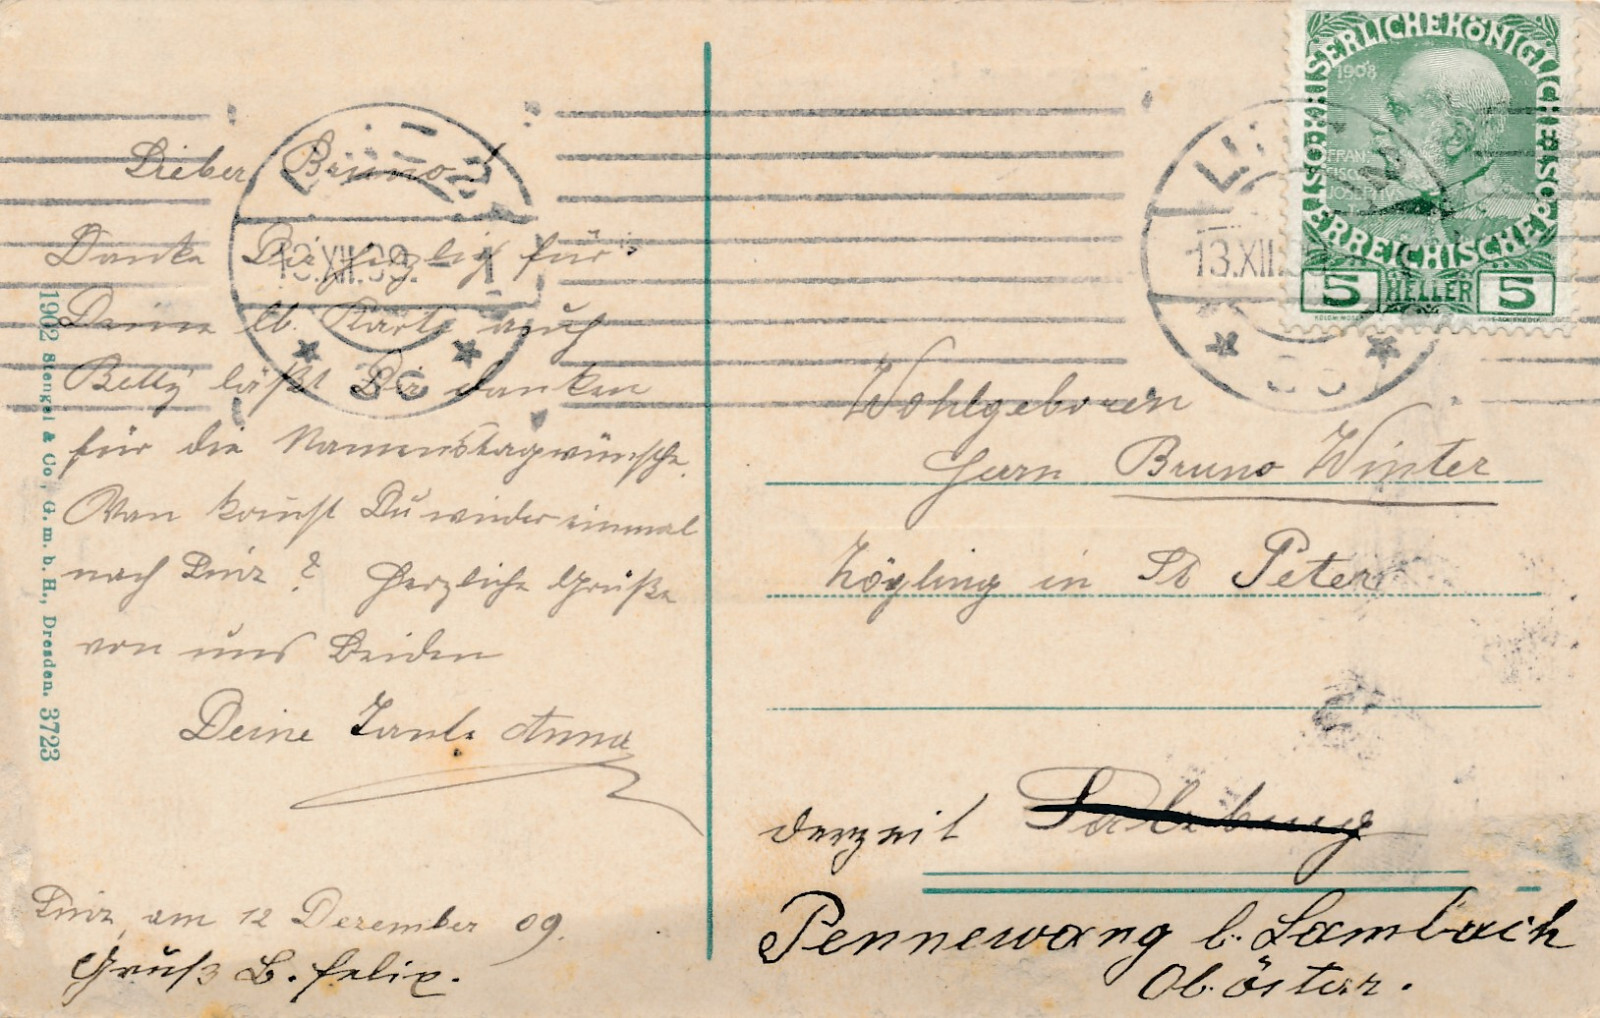 Lieber Bruno
Danke Dir herzlich für
Deine lb. Karte, auch
Betty läßt Dir danken
für die Namenstagwünsche.
Wan komst Du wieder einmal
nach Linz? Herzliche Grüße
von uns Beiden
Deine Tante Anna
Linz, am 12 Dezember 09.
Gruß B. Felix.
1902 Stengel & Co., G. m. b. H., Dresden. 3723
LINZ
13.XII.09.-1
LINZ
13.XII.
KAISERLICHEKÖNIGLICHE
ÖSTERREICHISCHE POST
1908
FRAN
CISCUS
JOSEPHUS I
5 HELLER 5
Wohlgeboren
Herrn Bruno Winter
Zögling in St Peter
derzeit Salzburg
Pennewang b. Lambach
Ob. öster.